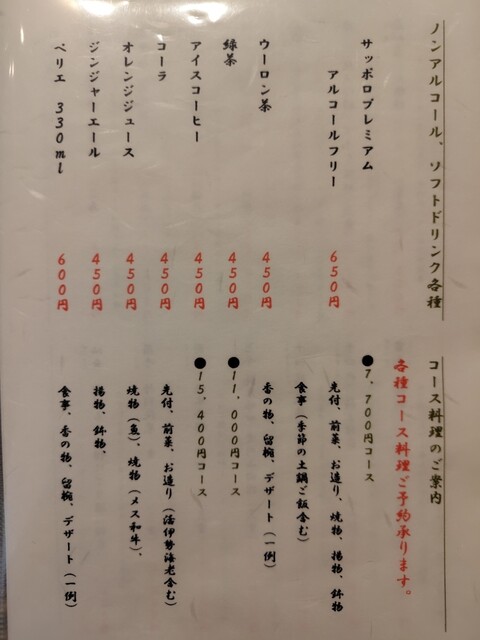 ノンアルコール、ソフトドリンク各種
サッポロプレミアム
アルコールフリー 650円
ウーロン茶 450円
緑茶 450円
アイスコーヒー 450円
コーラ 450円
オレンジジュース 450円
ジンジャーエール 450円
ペリエ 330ml 600円
コース料理のご案内
各種コース料理ご予約承ります。
●7,700円コース
先付、前菜、お造り、焼物、揚物、鉢物
食事(季節の土鍋ご飯含む)
香の物、留椀、デザート(一例)
●11,000円コース
●15,400円コース
先付、前菜、お造り(活伊勢海老含む)
焼物(魚)、焼物(メス和牛)、
揚物、鉢物、
食事、香の物、留椀、デザート(一例)